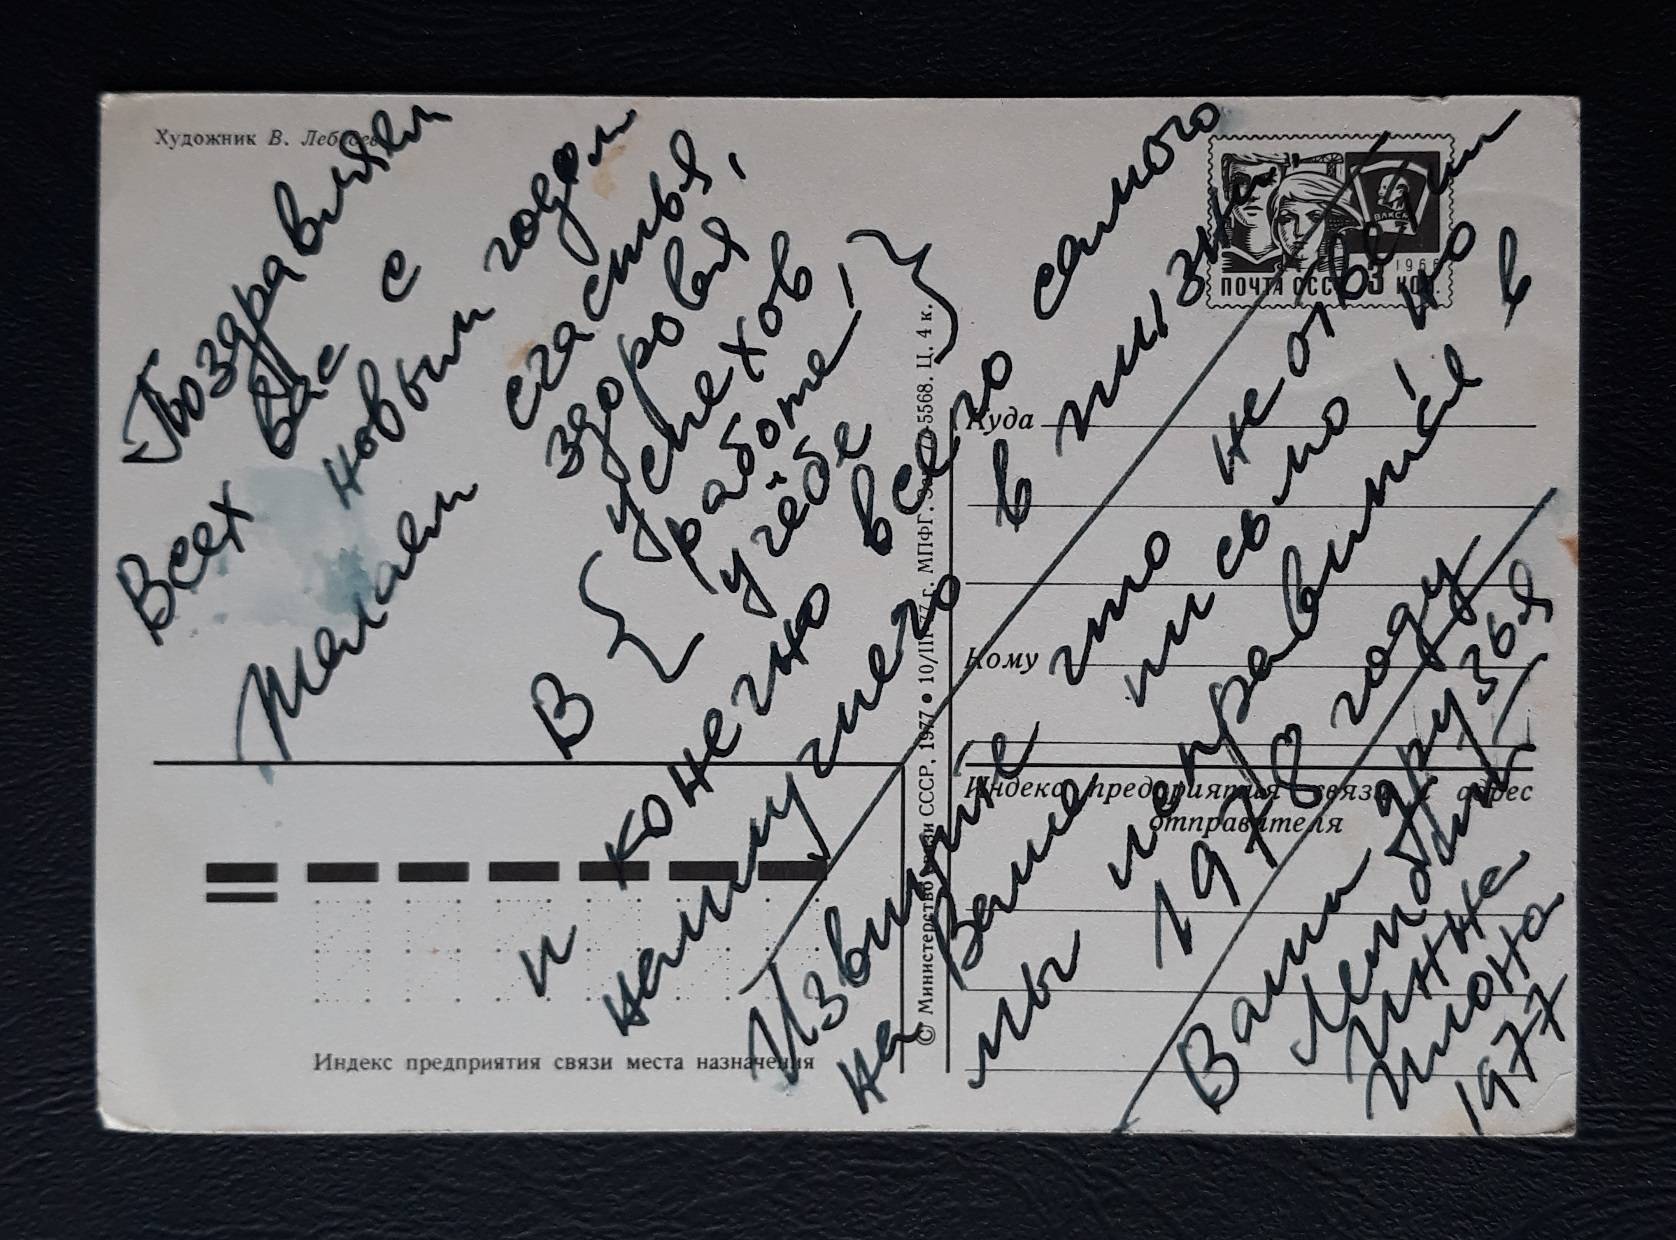 Художник В. Лебедев
Поздравляем
Вас с
Всех новым годом
Желаем счастья,
здоровья,
успехов
В { работе! }
и
учёбе
и конечно всего самого
наилучшего в жизни
Извините что не
на Ваше письмо но
мы исправимся! в
1978 году
Ваши друзья
Лембит
Инна
Илона
1977
ПОЧТА СССР 3 КОП.
ВЛКСМ
1966
© Министерство связи СССР, 1977 • 10/III-77 г. МПФГ. 5568. Ц. 4 к.
Куда
Кому
Индекс предприятия связи и адрес
отправителя
Индекс предприятия связи места назначения